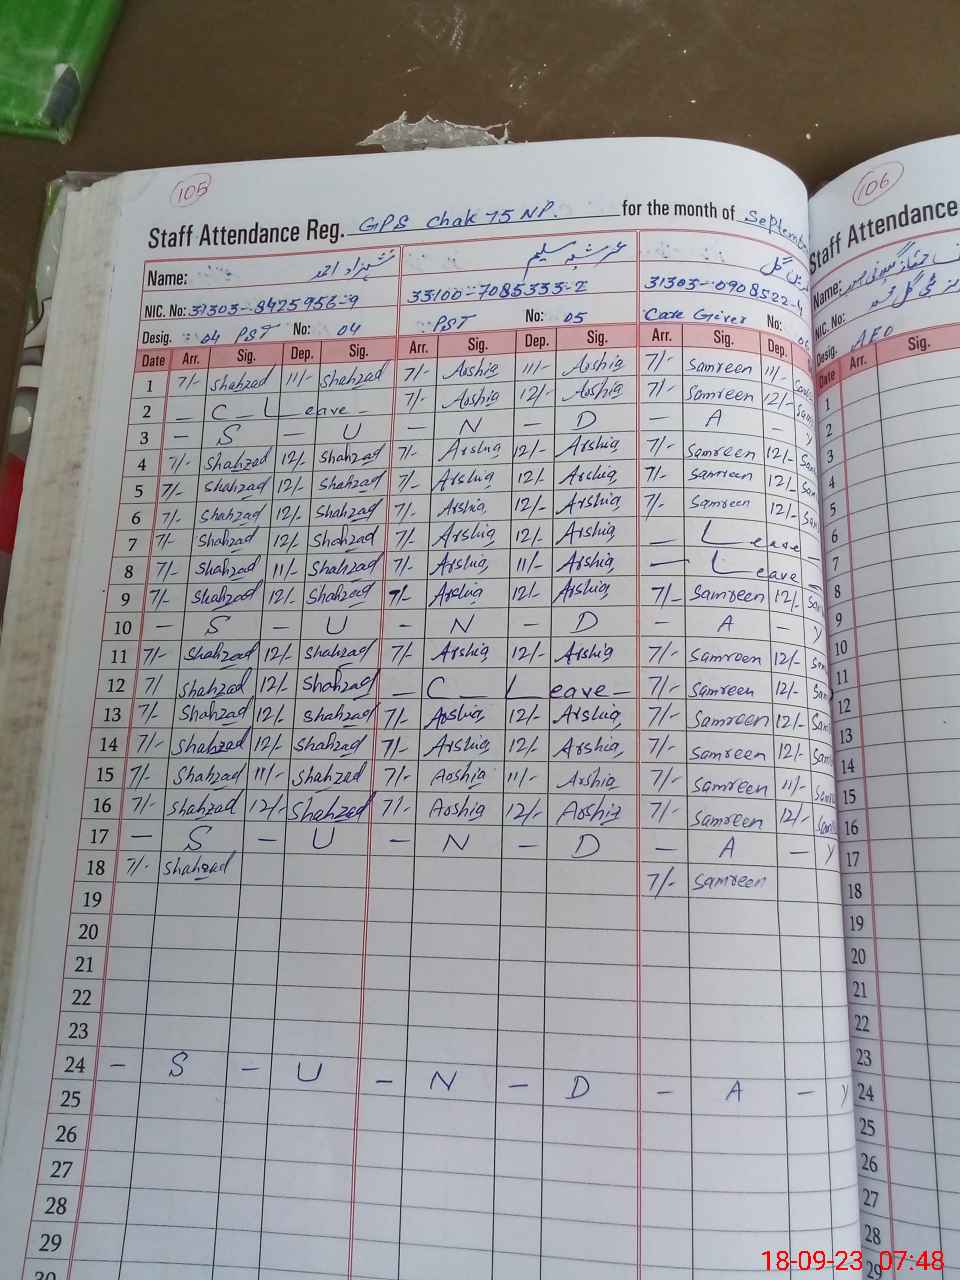 105
106
Staff Attendance Reg. GPS Chak 75 NP. for the month of Septemb
Staff Attendance
Name: شہزاد احمد عرشیہ سلیم
Name:
NIC. No: 31303-8425956-9 33100-7085333-2 31303-0908522-4
NIC. No:
Desig. 04 PST No: 04 PST No: 05 Care Giver No: 06
Desig. AEO
Date Arr. Sig. Dep. Sig. Arr. Sig. Dep. Sig. Arr. Sig. Dep.
Date Arr. Sig.
1 7/- Shahzad 11/- Shahzad 7/- Arshia 11/- Arshia 7/- Samreen 11/- Sam
2 - C - Leave - 7/- Arshia 12/- Arshia 7/- Samreen 12/- Sam
3 - S - U - N - D - A - Y
4 7/- Shahzad 12/- Shahzad 7/- Arshia 12/- Arshia 7/- Samreen 12/- Sam
5 7/- Shahzad 12/- Shahzad 7/- Arshia 12/- Arshia 7/- Samreen 12/- Sam
6 7/- Shahzad 12/- Shahzad 7/- Arshia 12/- Arshia 7/- Samreen 12/- Sam
7 7/- Shahzad 12/- Shahzad 7/- Arshia 12/- Arshia - Leave -
8 7/- Shahzad 11/- Shahzad 7/- Arshia 11/- Arshia - Leave -
9 7/- Shahzad 12/- Shahzad 7/- Arshia 12/- Arshia 7/- Samreen 12/- Sam
10 - S - U - N - D - A - Y
11 7/- Shahzad 12/- Shahzad 7/- Arshia 12/- Arshia 7/- Samreen 12/- Sam
12 7/ Shahzad 12/- Shahzad - C - Leave - 7/- Samreen 12/- Sam
13 7/- Shahzad 12/- Shahzad 7/- Arshia 12/- Arshia 7/- Samreen 12/- Sam
14 7/- Shahzad 12/- Shahzad 7/- Arshia 12/- Arshia 7/- Samreen 12/- Sam
15 7/- Shahzad 11/- Shahzad 7/- Arshia 11/- Arshia 7/- Samreen 11/- Sam
16 7/- Shahzad 12/- Shahzad 7/- Arshia 12/- Arshia 7/- Samreen 12/- Sam
17 - S - U - N - D - A - Y
18 7/- Shahzad 7/- Samreen
19
20
21
22
23
24 - S - U - N - D - A - Y
25
26
27
28
29
30
1
2
3
4
5
6
7
8
9
10
11
12
13
14
15
16
17
18
19
20
21
22
23
24
25
26
27
28
29
18-09-23 07:48